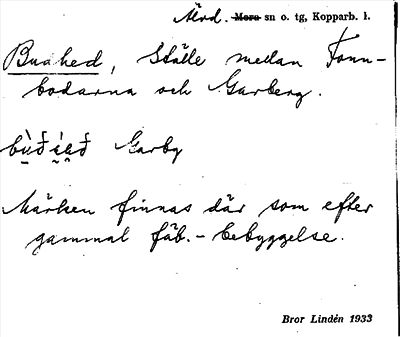 Älvd. Mora sn o. tg, Kopparb. l.
Buahed, ställe mellan Tonn-
bodarna och Garberg.
Garby
Märken finnas där som efter
gammal fäb.-bebyggelse.
Bror Lindén 1933